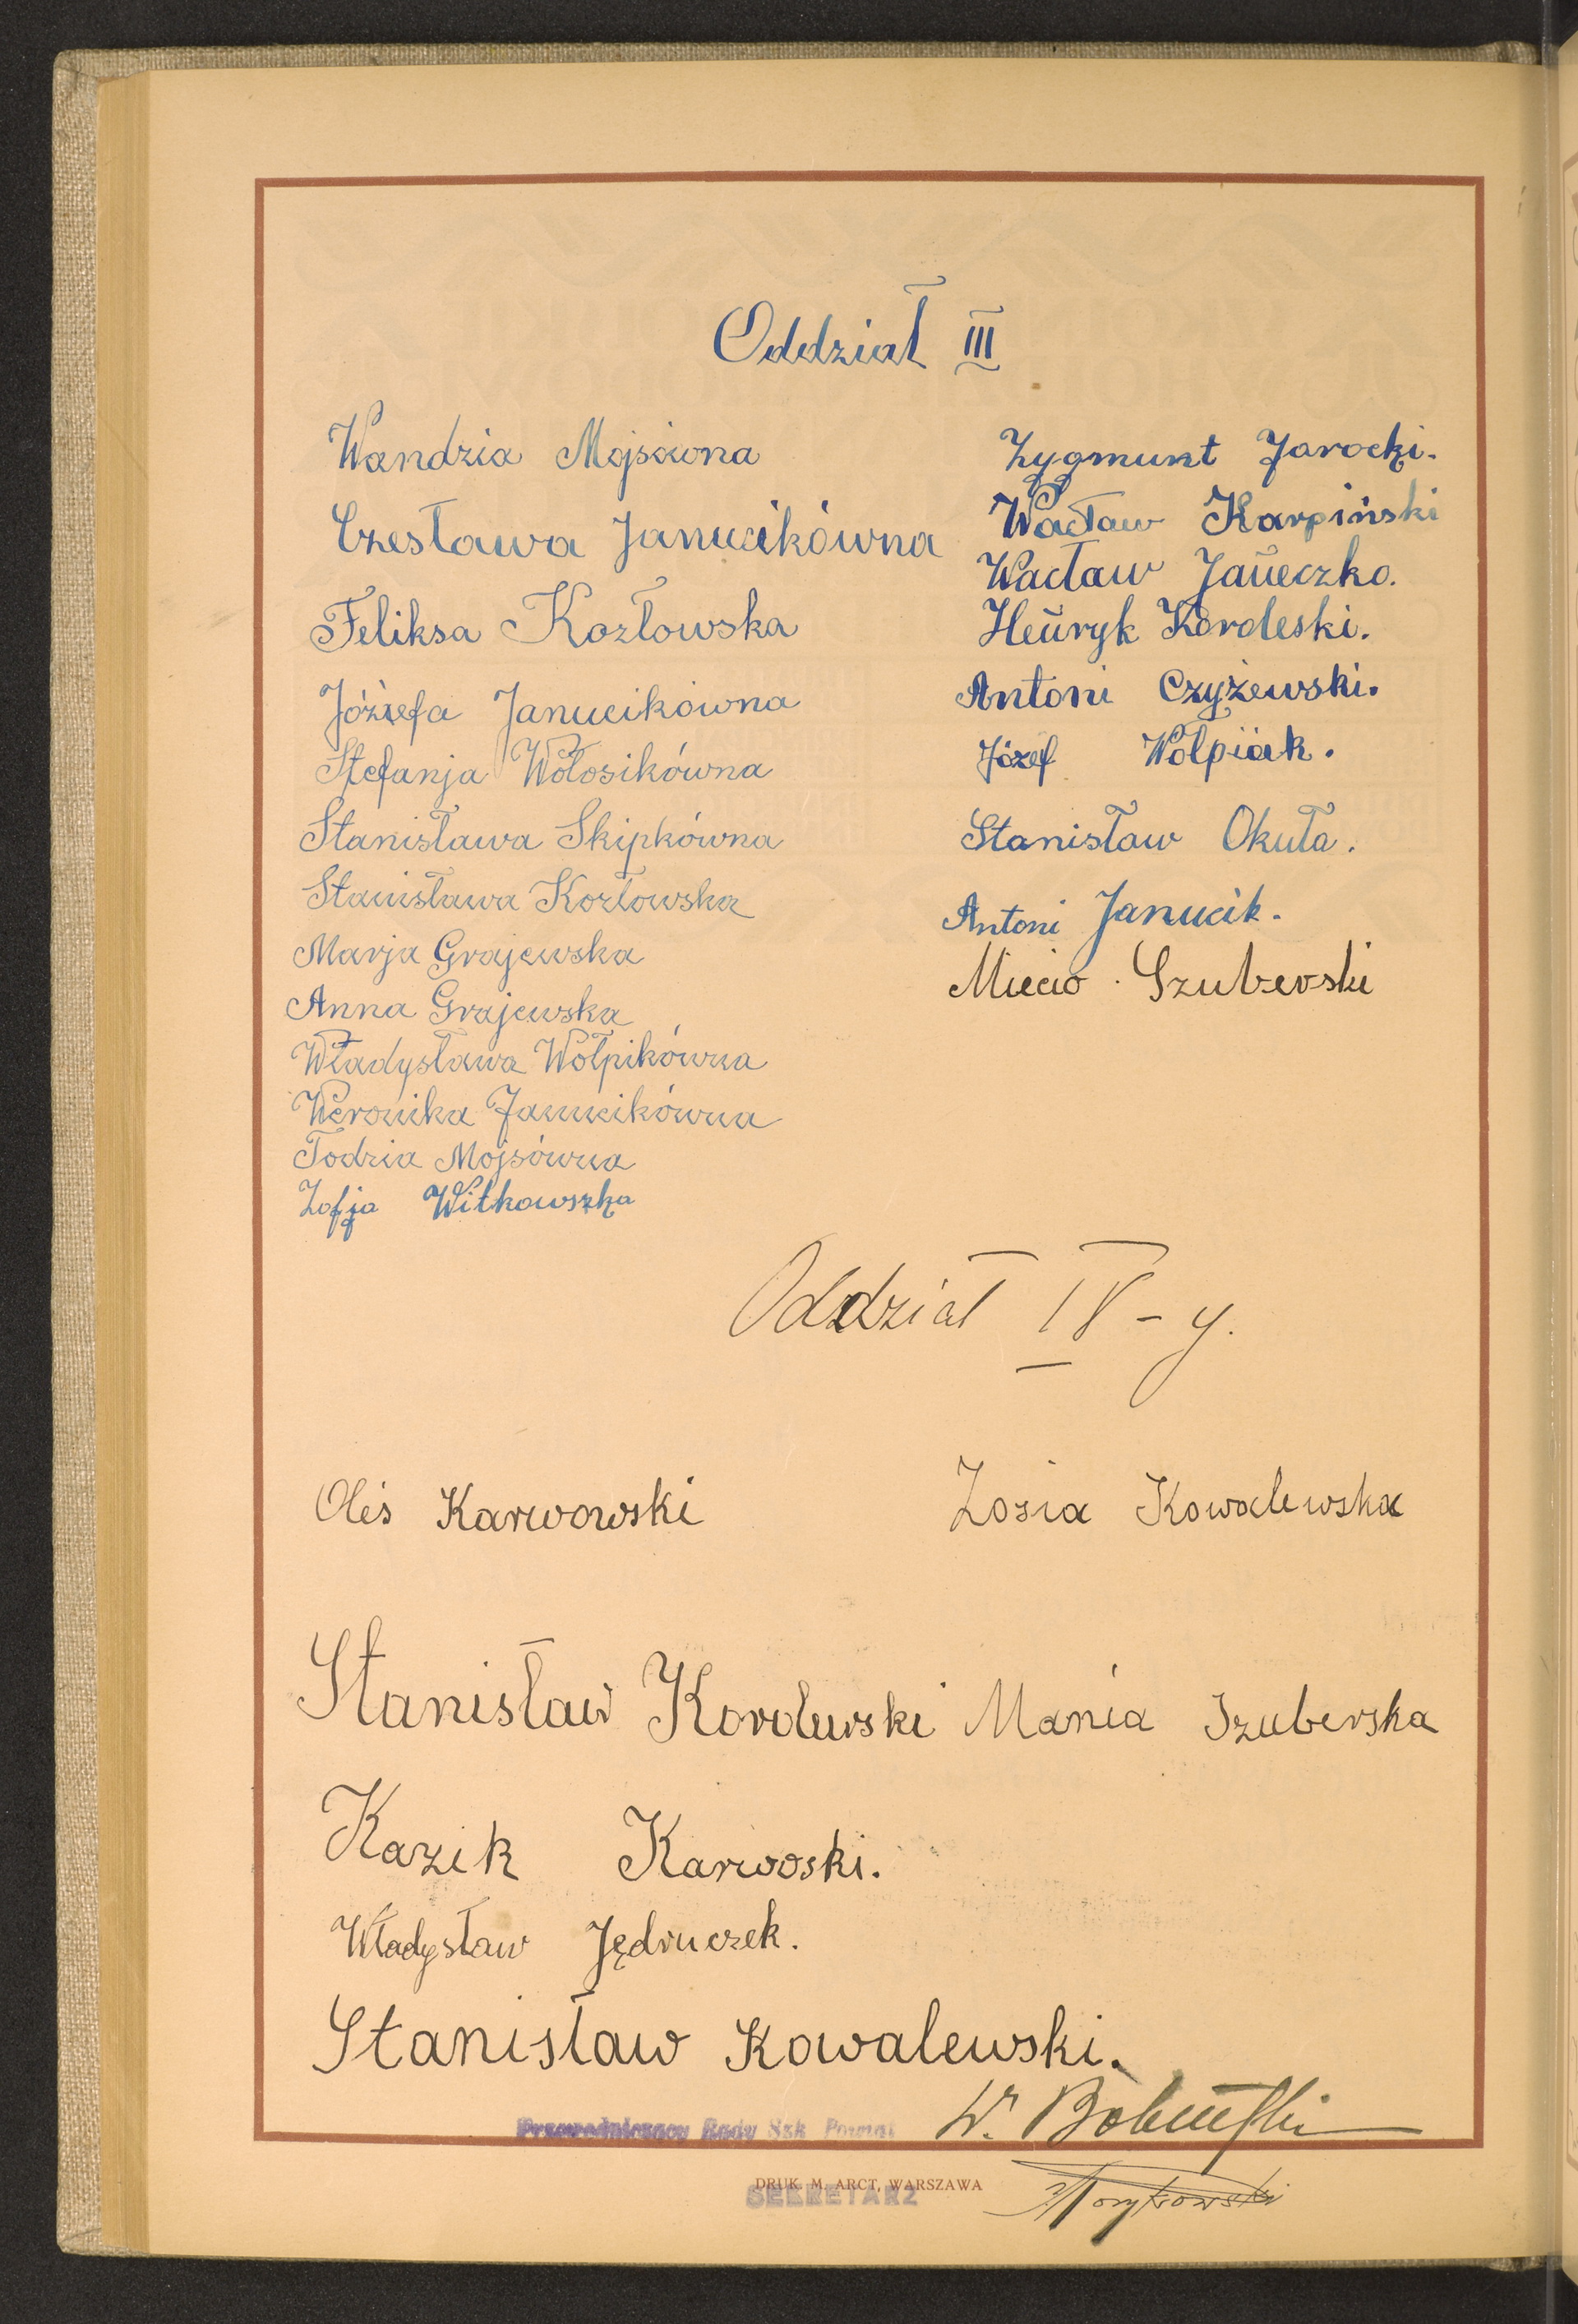 Oddział III
Wandzia Mojsówna
Czesława Janucikówna
Feliksa Kozłowska
Józiefa Janucikówna
Stefanja Wołosikówna
Stanisława Skipkówna
Stanisława Kozłowska
Marja Grajewska
Anna Grajewska
Władysława Wołpikówna
Weronika Janucikówna
Todzia Mojsówna
Zofja Witkowszka
Zygmunt Jarocki.
Wacław Karpiński
Wacław Janeczko.
Henryk Kordeski.
Antoni Czyżewski.
Józef Wołpiak.
Stanisław Okuła.
Antoni Janucik.
Miecio Szuberski
Oddział IV-y.
Oleś Karwowski
Zosia Kowalewska
Stanisław Kordewski
Mania Szuberska
Kazik Karwoski.
Władysław Jędruczek.
Stanisław Kowalewski.
Przewodniczący Rady Szk. Powiat
W.
DRUK. M. ARCT, WARSZAWA
SEKRETARZ